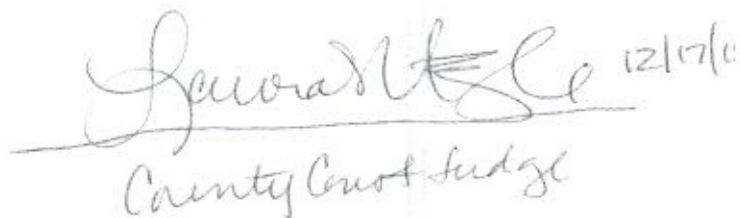 Laura 12/17/1
County Court Judge